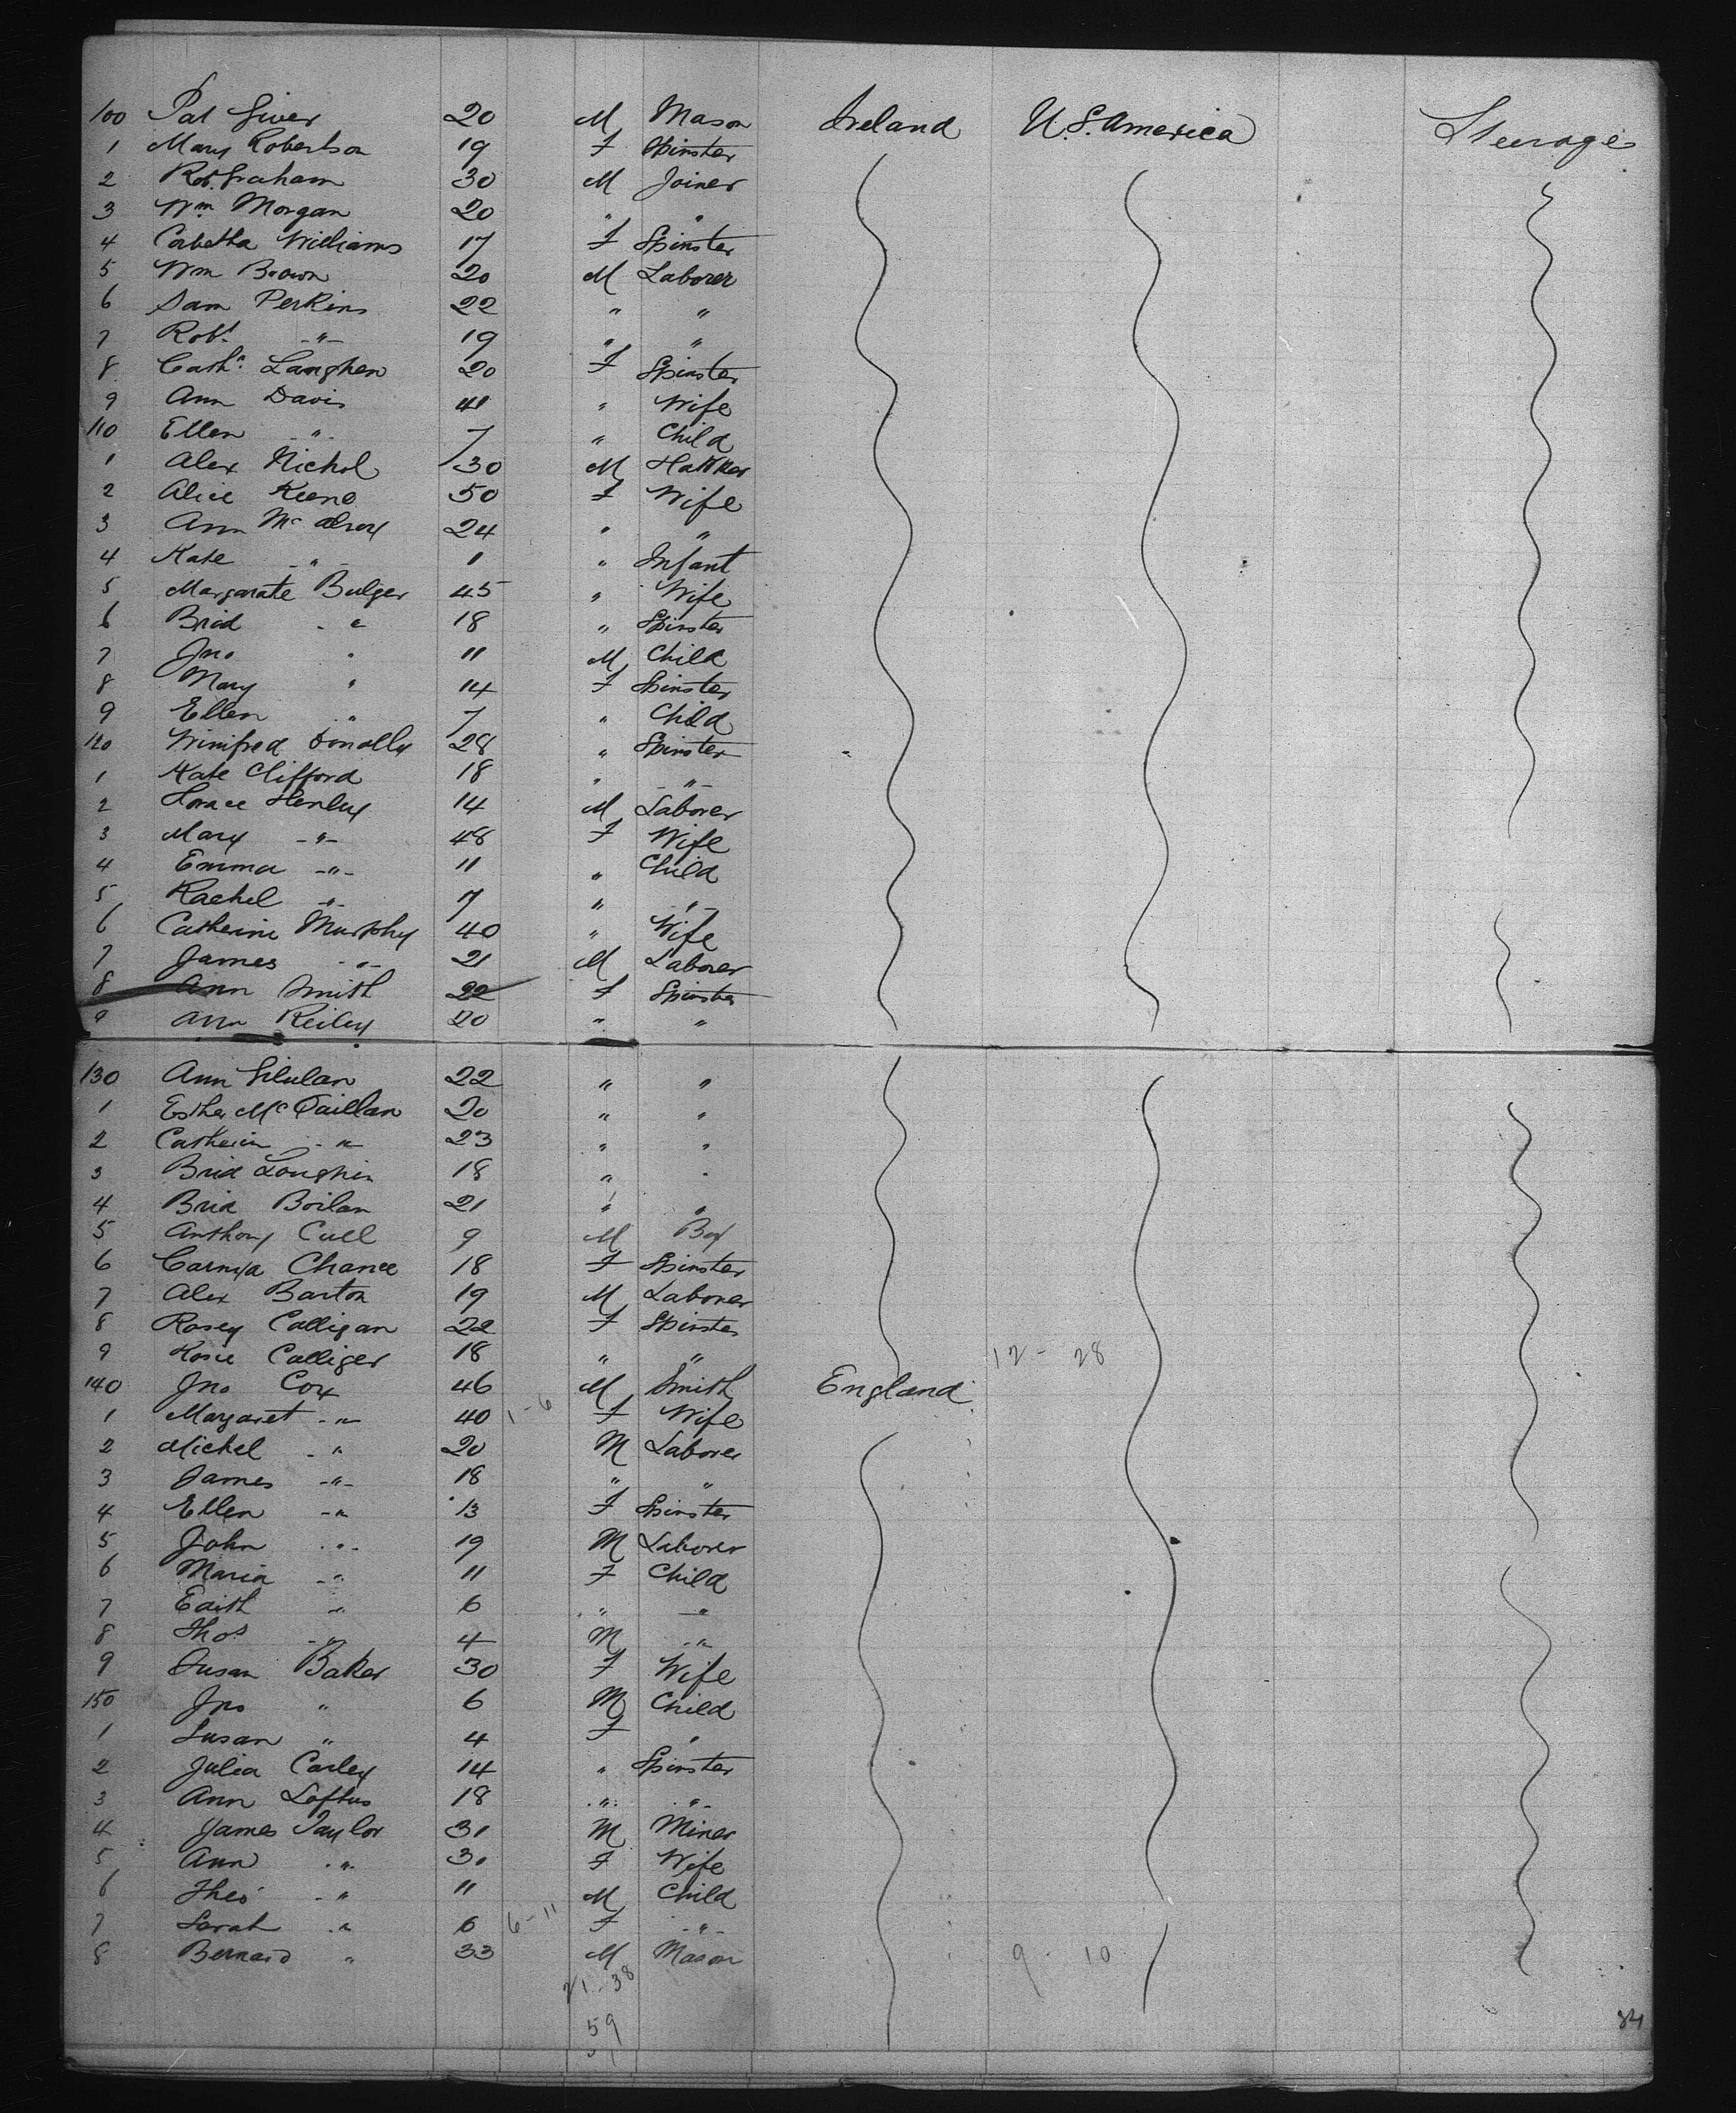 100 Pat Giver 20 M Mason Ireland U.S. America Steerage
1 Mary Robertson 19 F Spinster
2 Robt. Graham 30 M Joiner
3 Wm Morgan 20 " "
4 Corbetta Williams 17 F Spinster
5 Wm Brown 20 M Laborer
6 Sam Perkins 22 " "
7 Robt -"- 19 " "
8 Cathe Langhen 20 F Spinster
9 Ann Davis 41 " Wife
110 Ellen -"- 7 " Child
1 Alex Nichol 30 M Hawker
2 Alice Keeno 50 F Wife
3 Ann Mc 24 " "
4 Kate -"- 1 " Infant
5 Margarate Bulger 45 " Wife
6 Brid " 18 " Spinster
7 Jno " 11 M Child
8 Mary " 14 F Spinster
9 Ellen " 7 " Child
120 Winifred Donolly 28 " Spinster
1 Kate Clifford 18 " -"-
2 Horace Henley 14 M Laborer
3 Mary -"- 48 F Wife
4 Emma -"- 11 " Child
5 Rachel -"- 7 " -"-
6 Catherine Murphy 40 " Wife
7 James -"- 21 M Laborer
8 Ann Smith 22 F Spinster
9 Ann Reiley 20 " "
130 Ann Gilulan 22 " "
1 Esther McQuillan 20 " "
2 Catherin -"- 23 " "
3 Brid Loughin 18 " "
4 Brid Boilan 21 " "
5 Anthony Cull 9 M Boy
6 Chance 18 F Spinster
7 Alex Barton 19 M Laborer
8 Rosey Colligan 22 F Spinster
9 Rosie Colliger 18 " " 12 - 28
140 Jno Cox 46 M Smith England
1 Margaret -"- 40 1-6 F Wife
2 Michel -"- 20 M Laborer
3 James -"- 18 " "
4 Ellen -"- 13 F Spinster
5 John -"- 19 M Laborer
6 Maria -"- 11 F Child
7 Edith -"- 6 " -"-
8 Thos -"- 4 M -"-
9 Susan Baker 30 F Wife
150 Jno " 6 M Child
1 Susan " 4 F "
2 Julia Carley 14 " Spinster
3 Ann Loftus 18 " -"-
4 James Taylor 31 M Miner
5 Ann -"- 30 F Wife
6 Theo -"- 11 M Child
7 Sarah -"- 6 6-11 F -"-
8 Bernard " 33 M Mason 9 - 10
21-38
59
84